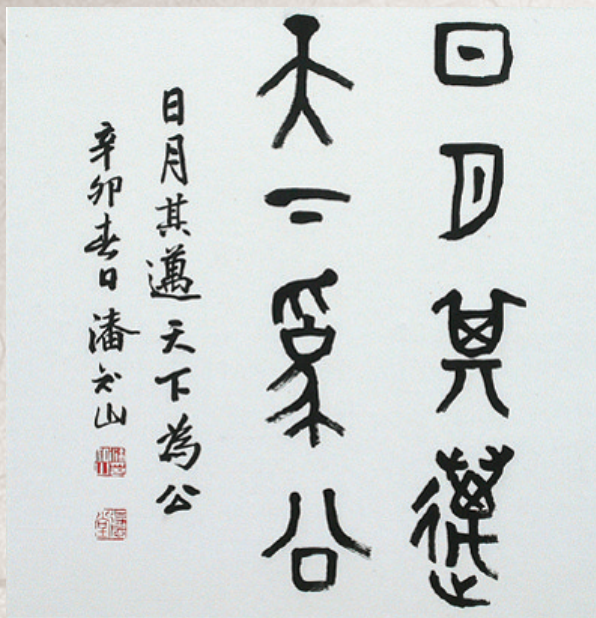 日月其邁
天下為公
日月其邁天下為公
辛卯春日潘主山